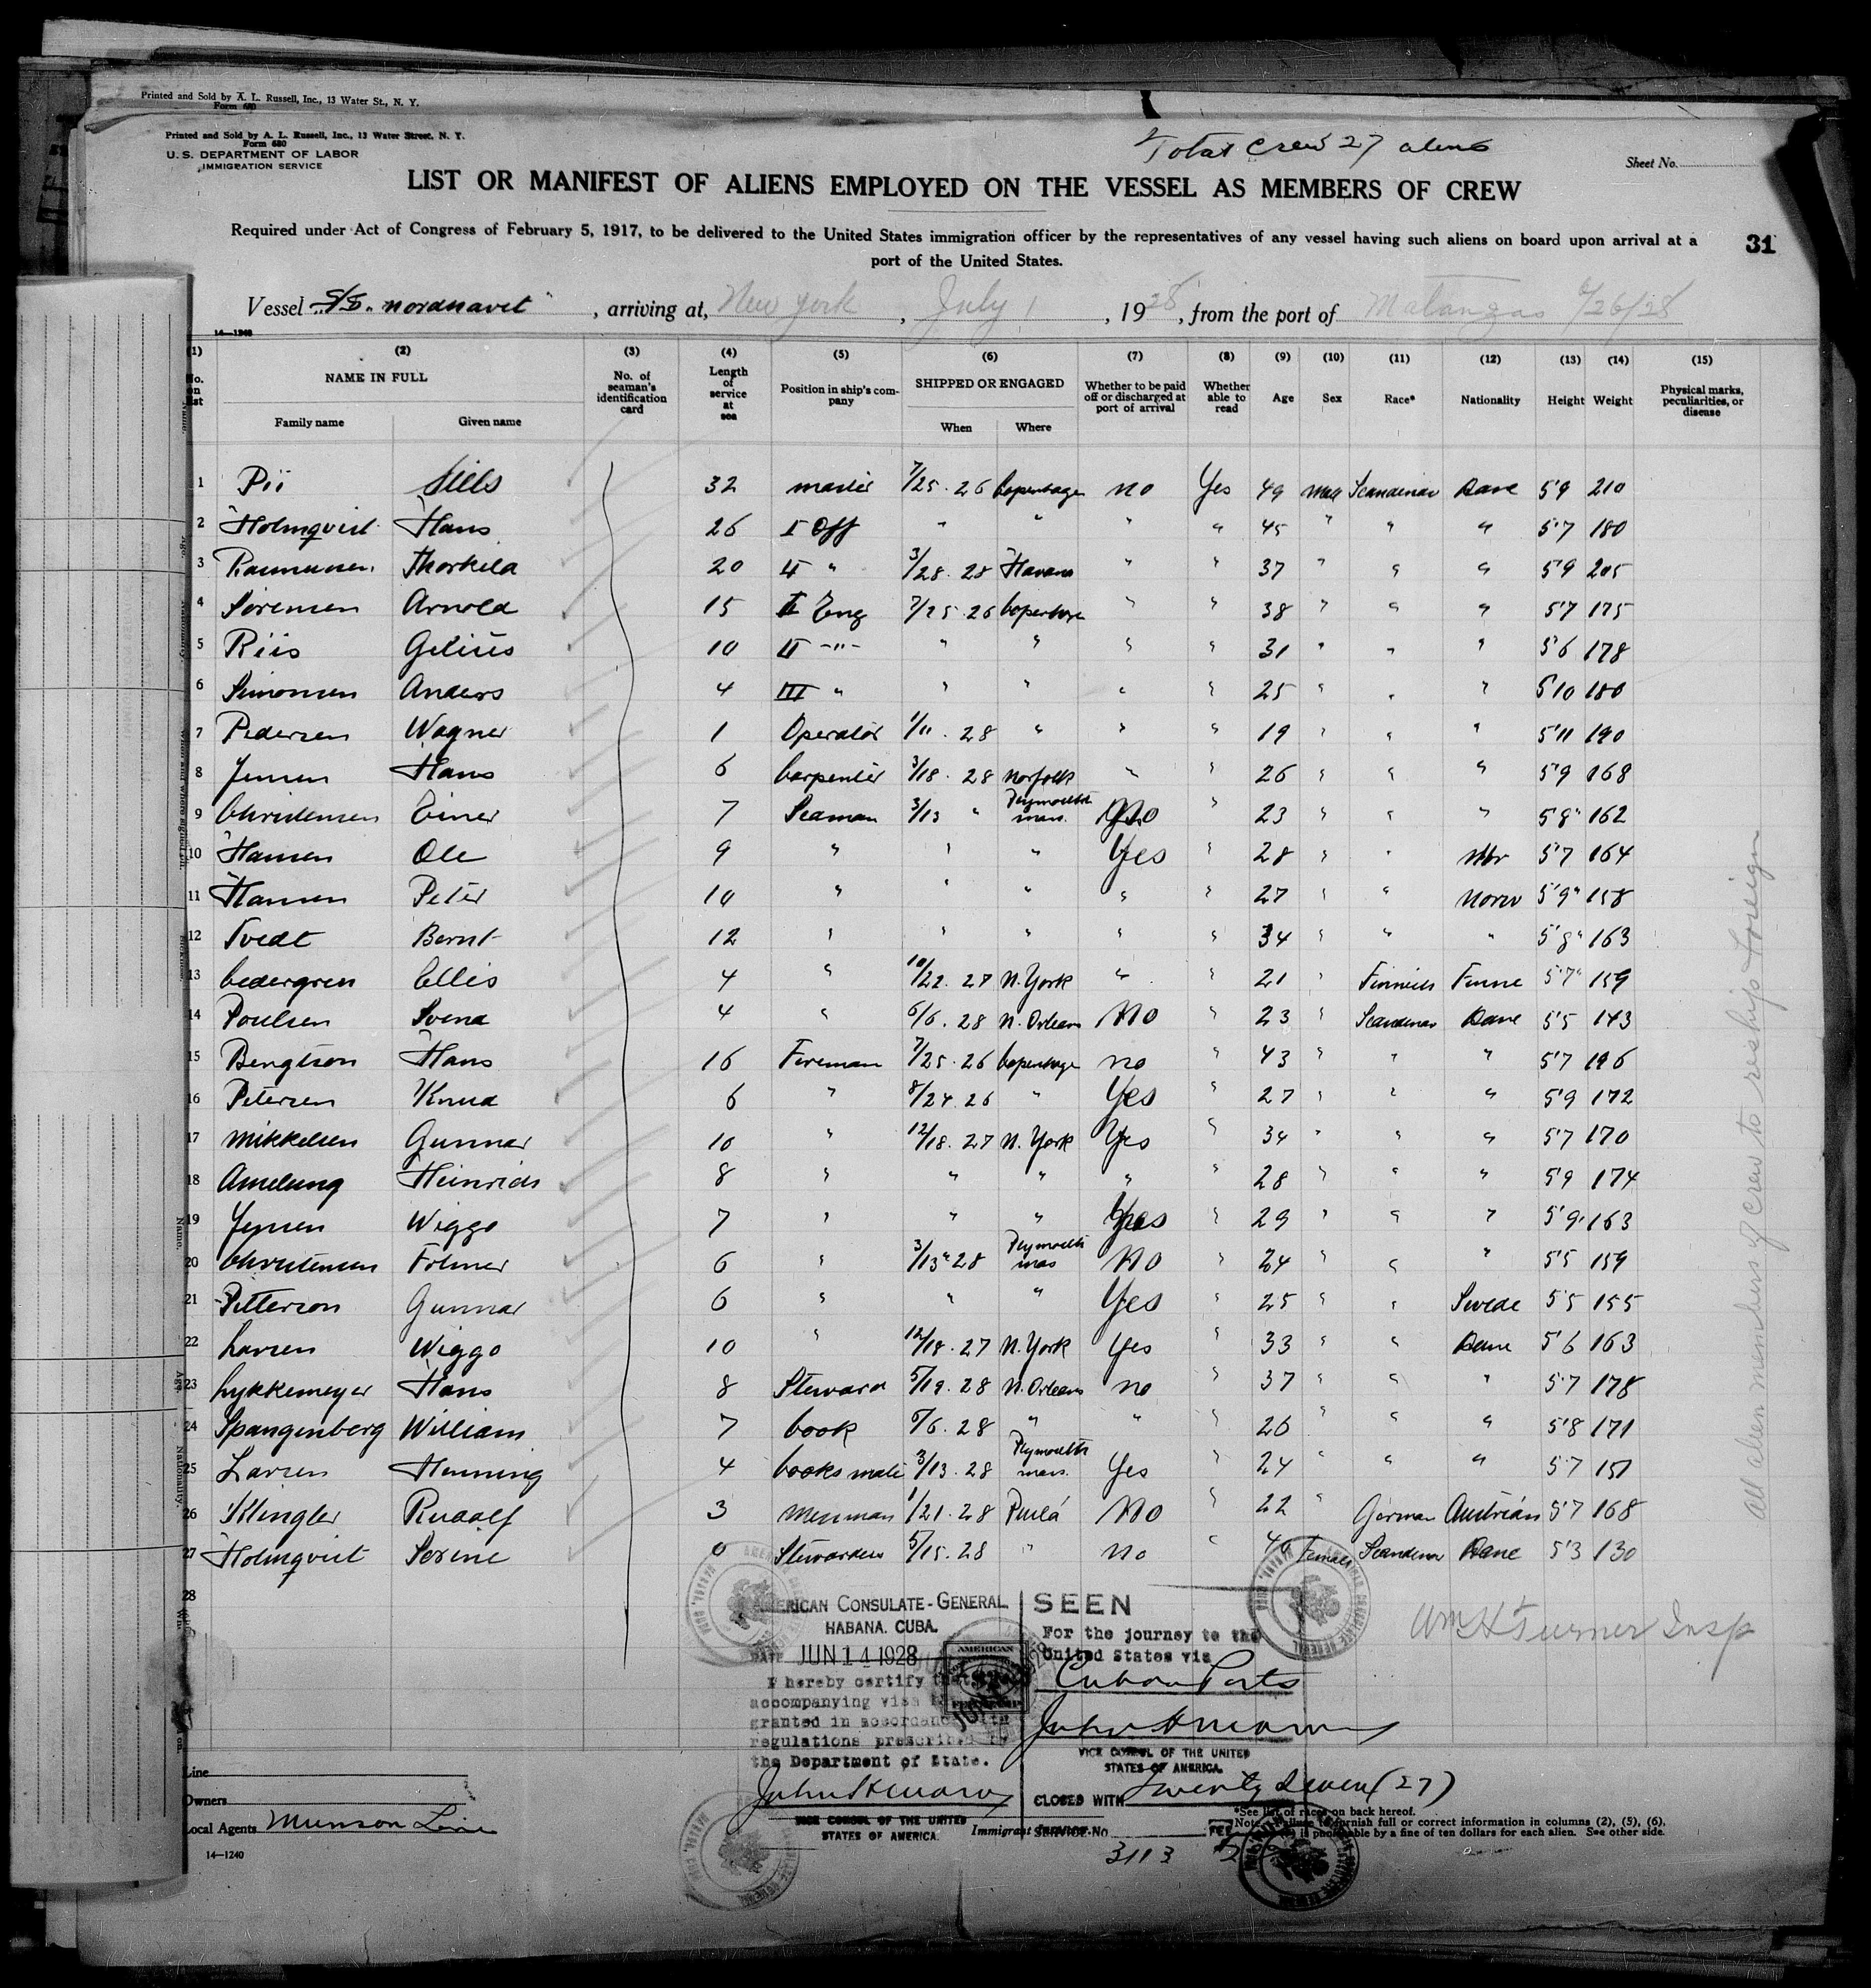 Printed and Sold by A. L. Russell, Inc., 13 Water St., N. Y.
Form 680
Printed and Sold by A. L. Russell, Inc., 13 Water Street, N. Y.
Form 680
U. S. DEPARTMENT OF LABOR
IMMIGRATION SERVICE
Total Crew 27 aliens
Sheet No.
LIST OR MANIFEST OF ALIENS EMPLOYED ON THE VESSEL AS MEMBERS OF CREW
Required under Act of Congress of February 5, 1917, to be delivered to the United States immigration officer by the representatives of any vessel having such aliens on board upon arrival at a
port of the United States.
31
Vessel S/S. nordhavet, arriving at, New York, July 1, 1928, from the port of Matanzas 6/26/28
14—1240
(1) (2) (3) (4) (5) (6) (7) (8) (9) (10) (11) (12) (13) (14) (15)
No. on list NAME IN FULL No. of seaman's identification card Length of service at sea Position in ship's company SHIPPED OR ENGAGED Whether to be paid off or discharged at port of arrival Whether able to read Age Sex Race* Nationality Height Weight Physical marks, peculiarities, or disease
Family name Given name When Where
1 Pii Niels 32 master 7/25.26 Copenhage no Yes 49 Scandinav Dane 5'9 210
2 Holmqvist Hans 26 I Off " " " " 45 " " " 5'7 180
3 Rasmussen Thorkild 20 II " 3/28.28 Havana " " 37 " " " 5'9 205
4 Sørensen Arnold 15 I Eng 7/25.26 " " 38 " " " 5'7 175
5 Riis 10 II -"- " " " " 31 " " " 5'6 178
6 Simonsen Anders 4 III " " " " " 25 " " " 5'10 180
7 Pedersen Wagner 1 Operator 1/11.28 " " " 19 " " " 5'11 190
8 Jensen Hans 6 Carpenter 3/18.28 Norfolk " " 26 " " " 5'9 168
9 Christensen Einer 7 Seaman 3/13 " Plymouth mass. No " 23 " " " 5'8" 162
10 Hansen Ole 9 " " " Yes " 28 " " Nor 5'7 164
11 Hansen Peter 10 " " " " " 27 " " Norw 5'9" 158
12 Tvedt Bernt 12 " " " " " 34 " " " 5'8" 163
13 Cedergren Ellis 4 " 10/22.27 N. York " " 21 " Finnish Finne 5'7" 159
14 Poulsen Svend 4 " 6/6.28 N. Orleans No " 23 " Scandinav Dane 5'5 143
15 Bengtson Hans 16 Fireman 7/25.26 Copenhage no " 43 " " " 5'7 196
16 Petersen Knud 6 " 8/24.26 " Yes " 27 " " " 5'9 172
17 Mikkelsen Gunnar 10 " 12/18.27 N. York Yes " 34 " " " 5'7 170
18 Amelung Heinrich 8 " " " " " 28 " " " 5'9 174
19 Jensen Wiggo 7 " " " Yes " 29 " " " 5'9" 163
20 Christensen Folmer 6 " 3/13.28 Plymouth mas No " 24 " " " 5'5 159
21 Petterson Gunnar 6 " " " Yes " 25 " " Swede 5'5 155
22 Larsen Wiggo 10 " 12/18.27 N. York Yes " 33 " " Dane 5'6 163
23 Lykkemeyer Hans 8 Steward 5/19.28 N. Orleans no " 37 " " " 5'7 178
24 Spangenberg William 7 Cook 6/6.28 " " " 26 " " " 5'8 171
25 Larsen Henning 4 Cooks mate 3/13.28 Plymouth mass. Yes " 24 " " " 5'7 151
26 Klingler Rudolf 3 Messman 1/21.28 No " 22 " German Austrian 5'7 168
27 Holmqvist Serine 0 Stewardess 5/15.28 " No " 40 Female Scandinav Dane 5'3 130
28
All alien members of crew to reship foreign
Wm H Turner Insp
AMERICAN CONSULATE-GENERAL
HABANA, CUBA.
DATE JUN 14 1928
I hereby certify that
accompanying visa
granted in accordance with
regulations prescribed by
the Department of State.
VICE CONSUL OF THE UNITED
STATES OF AMERICA.
SEEN
For the journey to the
United States via
Cuban Ports
VICE CONSUL OF THE UNITED
STATES OF AMERICA.
CLOSED WITH Twenty Seven (27)
SERVICE No 3113
FEE
Line
Owners
Local Agents Munson Line
14—1240
*See list of races on back hereof.
Note.—Failure to furnish full or correct information in columns (2), (5), (6),
is punishable by a fine of ten dollars for each alien. See other side.